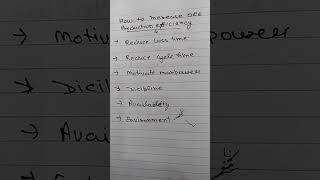 How to Increase OEE
Production efficiency
→ Reduce Loss time
→ Reduce Cycle time
→ Motivate manpower
→ Dicipline
→ Availability
→ Environment